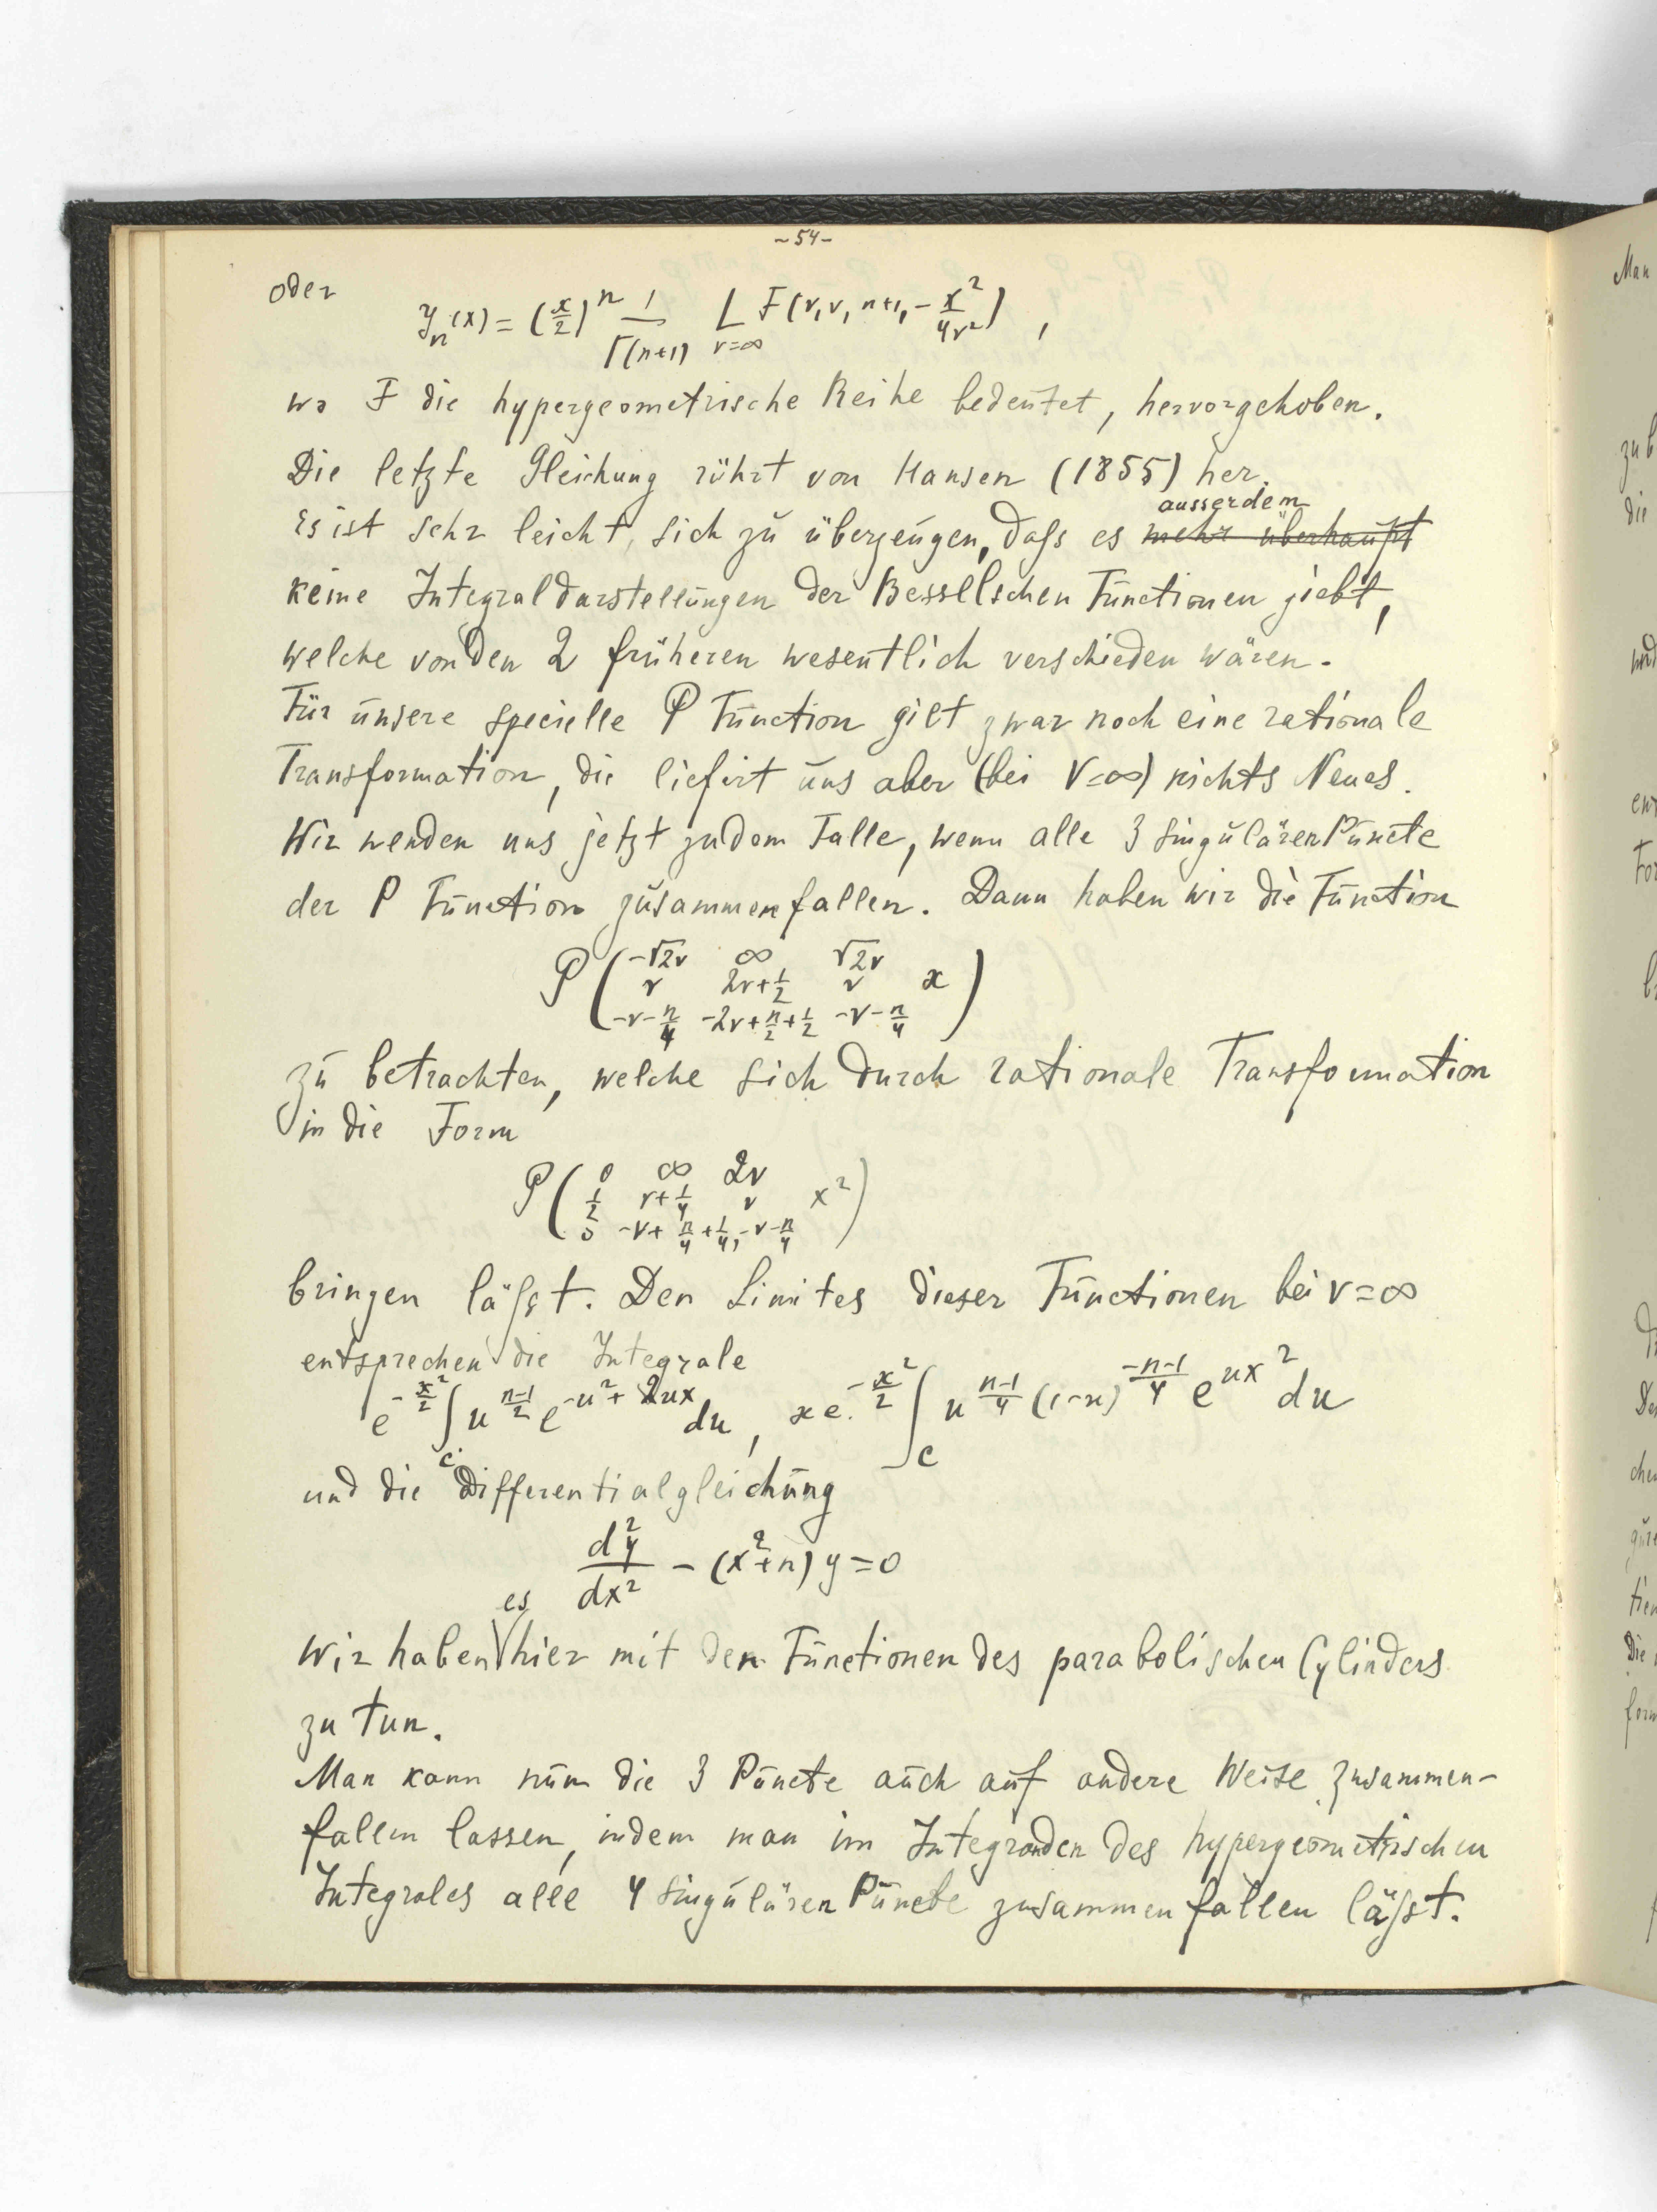 ~54-
oder
J_n(x) = (x/2)^n 1/Γ(n+1) L_{ν=∞} F(ν, ν, n+1, -x²/4ν²) ,
wo F die hypergeometrische Reihe bedeutet, hervorgehoben.
Die letzte Gleichung rührt von Hansen (1855) her.
ausserdem
Es ist sehr leicht, sich zu überzeugen, dass es mehr überhaupt
keine Integraldarstellungen der Besselschen Functionen giebt,
welche von den 2 früheren wesentlich verschieden wären.
Für unsere specielle P Function gilt zwar noch eine rationale
Transformation, die liefert uns aber (bei ν=∞) nichts Neues.
Wir wenden uns jetzt zu dem Falle, wenn alle 3 singulären Puncte
der P Function zusammenfallen. Dann haben wir die Function
P ( -√2ν ∞ √2ν
ν 2ν+1/2 ν x )
-ν-n/4 -2ν+n/2+1/2 -ν-n/4
zu betrachten, welche sich durch rationale Transformation
in die Form
P ( 0 ∞ 2ν
1/2 ν+1/4 ν x² )
0 -ν+n/4+1/4, -ν-n/4
bringen lässt. Den Limites dieser Functionen bei ν=∞
entsprechen die Integrale
e^{-x²/2} ∫_C u^{(n-1)/2} e^{-u²+2ux} du , x e^{-x²/2} ∫_C u^{(n-1)/4} (1-u)^{(-n-1)/4} e^{ux²} du
und die Differentialgleichung
d²y/dx² - (x²+n) y = 0
es
Wir haben hier mit den Functionen des parabolischen Cylinders
zu tun.
Man kann nun die 3 Puncte auch auf andere Weise zusammen-
fallen lassen, indem man im Integranden des hypergeometrischen
Integrales alle 4 singulären Puncte zusammenfallen lässt.
Man
zu b
die
und